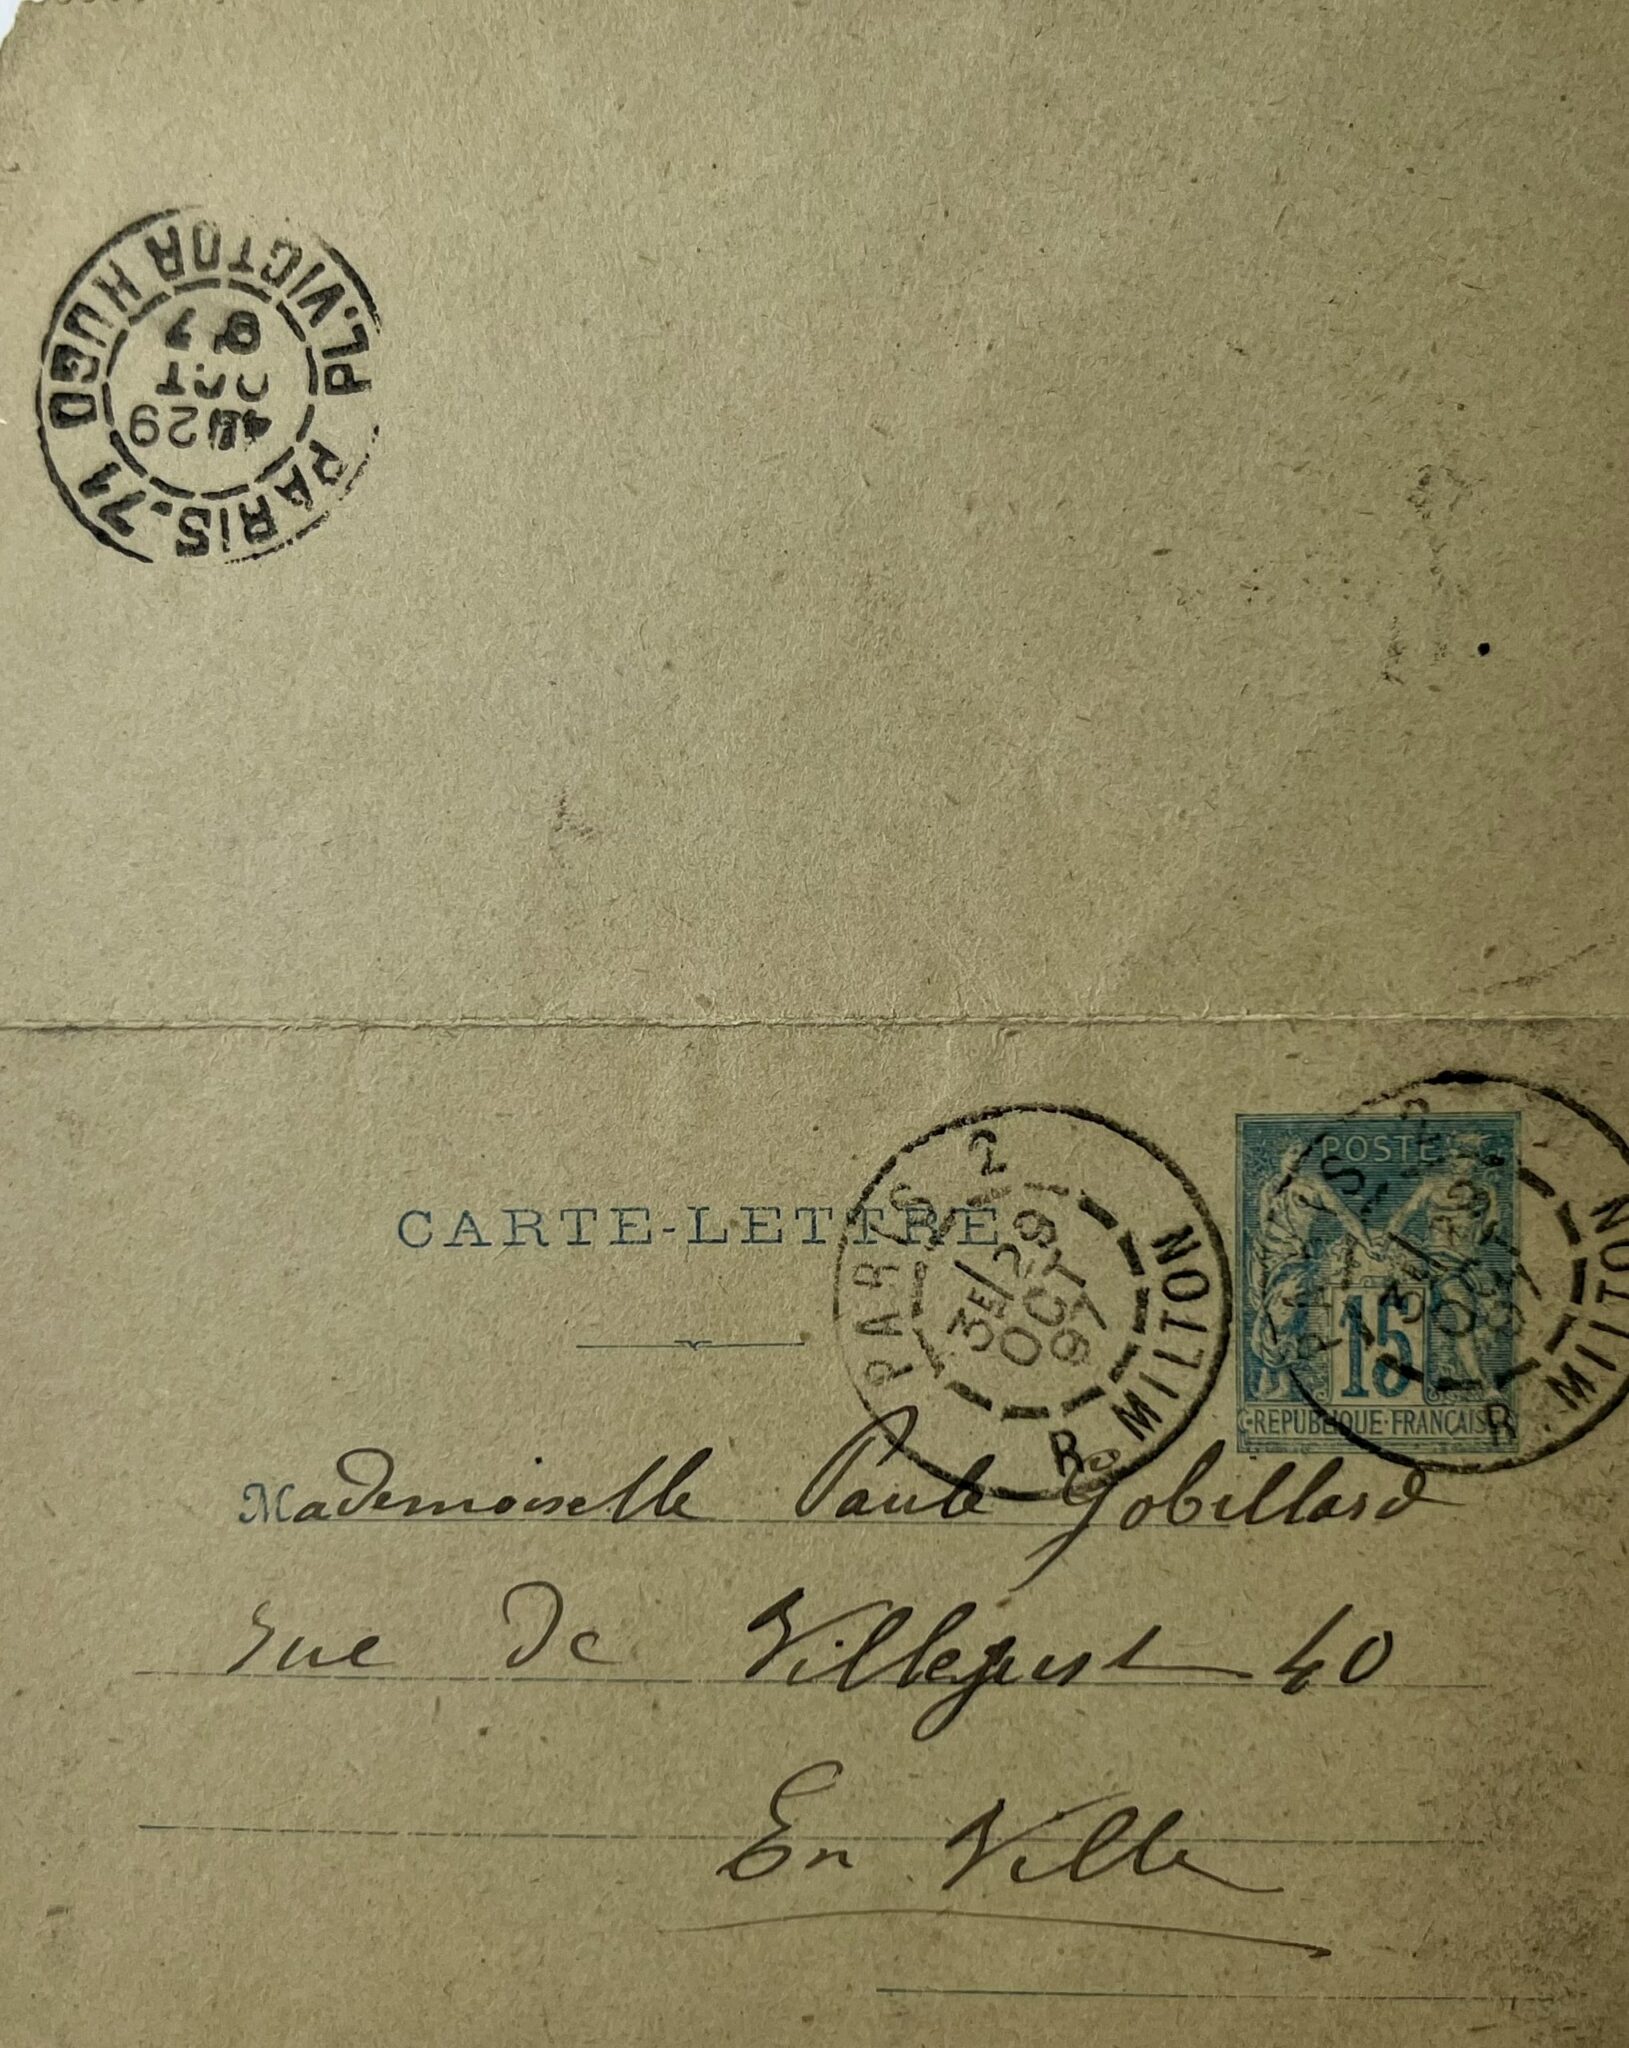 PARIS.71
PL. VICTOR HUGO
29
OCT
97
CARTE-LETTRE
PARIS 2
R. MILTON
3E/29
OCT
97
POSTE
15
REPUBLIQUE FRANÇAISE
PARIS 2
R. MILTON
3E/29
OCT
97
Mademoiselle Paule Gobillard
rue de Villejust 40
En Ville